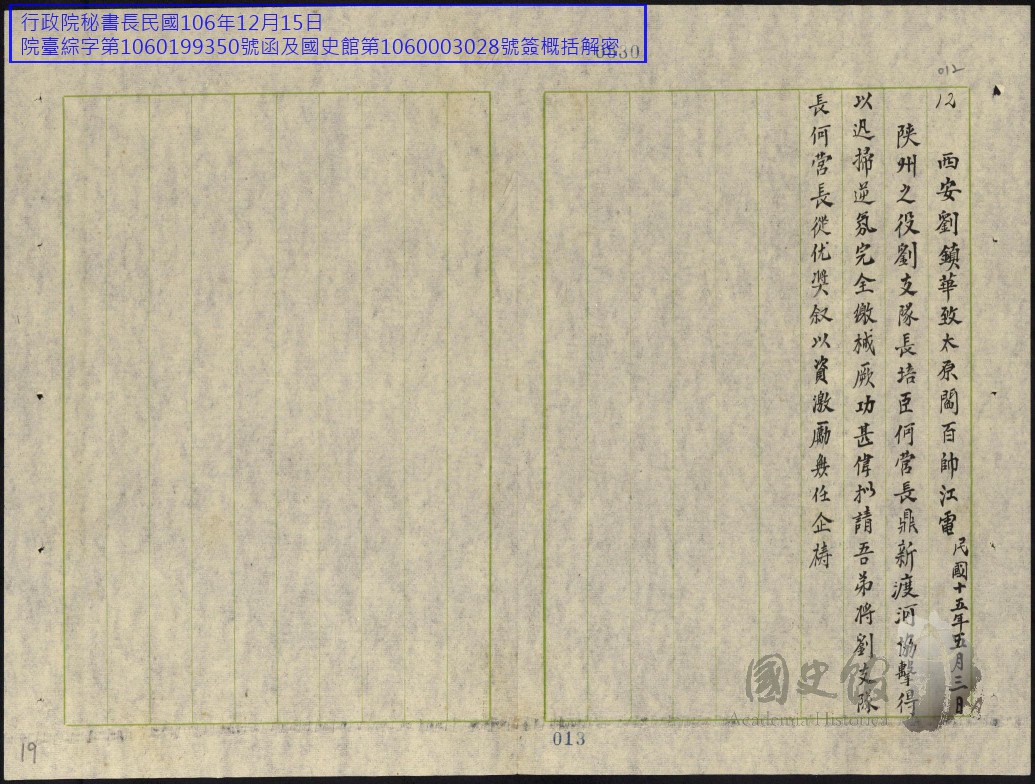 行政院秘書長民國106年12月15日
院臺綜字第1060199350號函及國史館第1060003028號簽概括解密
012
12
西安劉鎮華致太原閻百帥江電 民國十五年五月三日
陝州之役劉支隊長培臣何营長鼎新渡河協擊得
以迅掃逆氛完全缴械厥功甚偉拟請吾弟将劉支隊
長何营長從优奬叙以資激勵無任企禱
國史館
Academia Historica
013
19